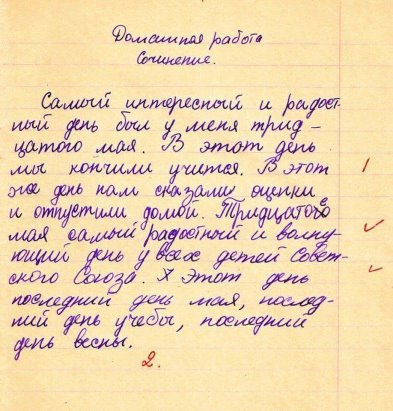 Домашная работа
Сочинение.
Самый интересный и радост
ный день был у меня трид-
цатого мая. В этот день
мы кончили учится. В этот
же день нам сказали оценки
и отпустили домой. Тридцатого
мая самый радостный и волну-
ющий день у всех детей Совет-
ского Союза. X Этот день
последний день мая, послед-
ний день учебы, последний
день весны.
2.